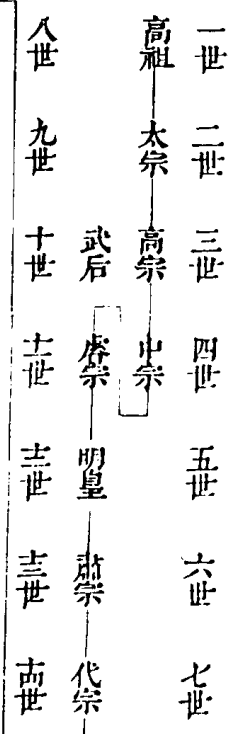 一世 二世 三世 四世 五世 六世 七世
高祖 太宗 高宗 中宗
武后 睿宗 明皇 肅宗 代宗
八世 九世 十世 十一世 十二世 十三世 十四世